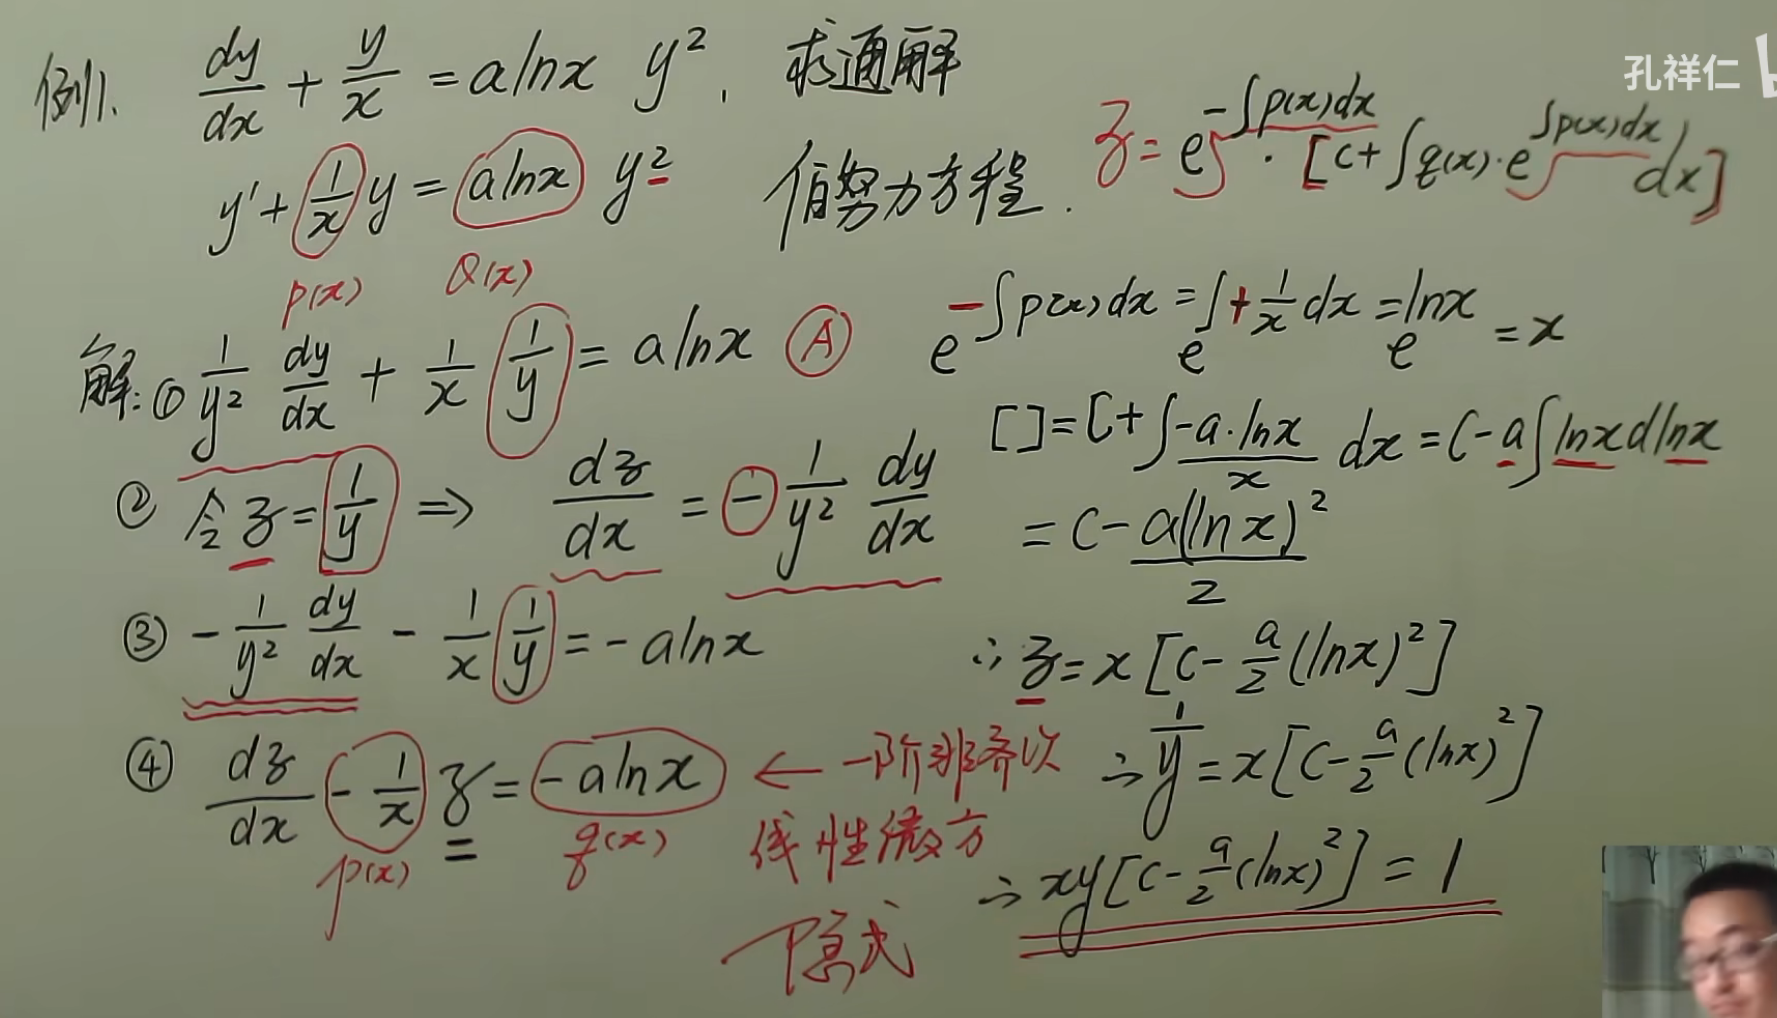 例1. dy/dx + y/x = alnx y², 求通解
y' + 1/x y = alnx y² 伯努力方程.
P(x) Q(x)
z = e^(-∫p(x)dx) · [c + ∫q(x)·e^(∫p(x)dx) dx]
解: ① 1/y² dy/dx + 1/x 1/y = alnx Ⓐ
② 令 z = 1/y ⇒ dz/dx = - 1/y² dy/dx
③ - 1/y² dy/dx - 1/x 1/y = -alnx
④ dz/dx - 1/x z = -alnx ← 一阶非齐次
p(x) q(x) 线性微方
e^(-∫p(x)dx) = e^(∫+1/x dx) = e^(lnx) = x
[ ] = C + ∫ -a·lnx/x dx = C - a∫lnx dlnx
= C - a(lnx)²/2
∴ z = x[C - a/2 (lnx)²]
∴ 1/y = x[C - a/2 (lnx)²]
∴ xy[C - a/2 (lnx)²] = 1
隐式
孔祥仁